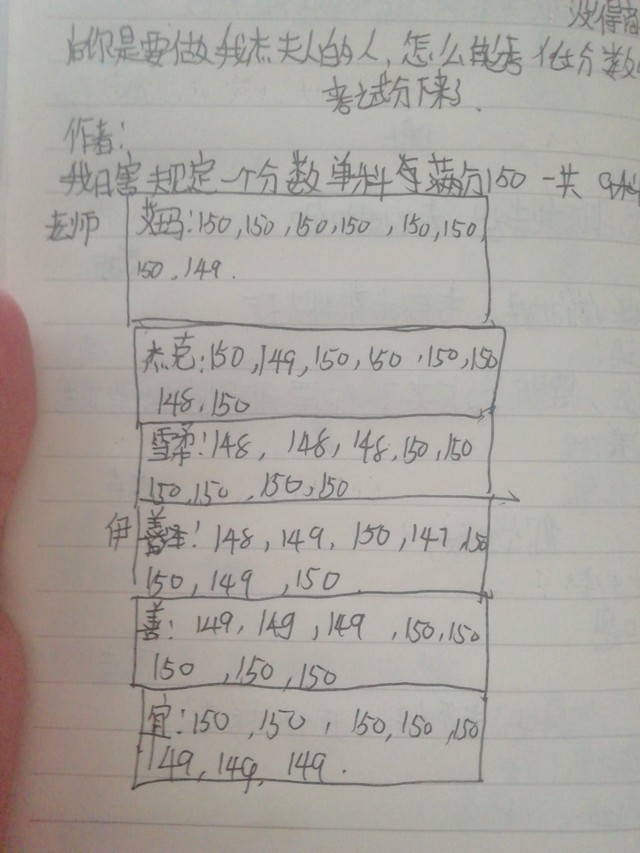 没得商
为你是要做我杰夫人的人,怎么能考低分数
考试分下来了.
作者:
我日害 规定一个分数 单科每满分150 一共 9科
老师
艾玛:150,150,150,150,150,150,
150,149.
杰克:150,149,150,150,150,150
148,150
雪柔:148, 148,148,150,150
150,150,150,150
伊
148,149,150,147,150
150,149,150
善:149,149,149,150,150
150,150,150
宜:150,150,150,150,150
149,149,149.